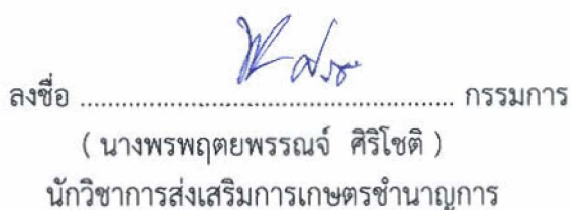 ลงชื่อ ........................................................ กรรมการ
( นางพรพฤตยพรรณจ์ ศิริโชติ )
นักวิชาการส่งเสริมการเกษตรชำนาญการ